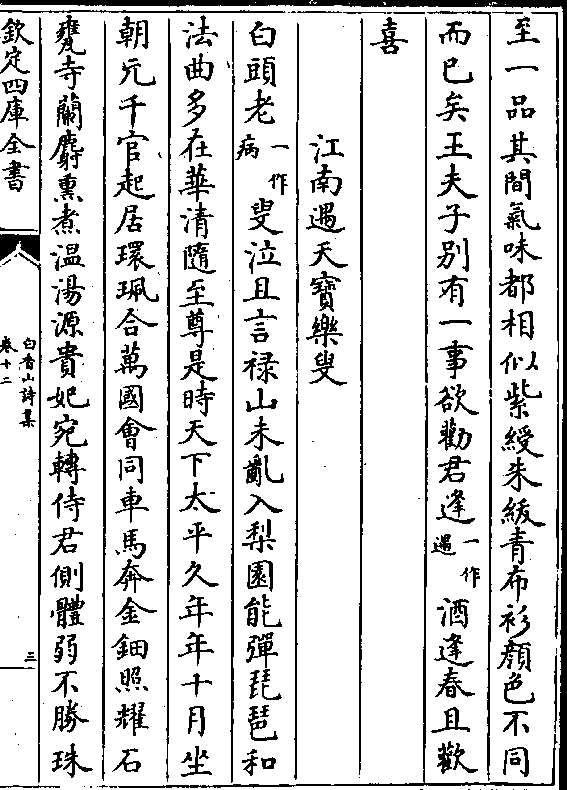 至一品其間氣味都相似紫綬朱紱青布衫顔色不同
而已矣王夫子别有一事欲勸君逢一作遇酒逢春且歡
喜
江南遇天寶樂叟
白頭老一作病叟泣且言禄山未亂入梨園能彈琵琶和
法曲多在華清隨至尊是時天下太平久年年十月坐
朝元千官起居環珮合萬國會同車馬奔金鈿照耀石
甕寺蘭麝熏煮温湯源貴妃宛轉侍君側體弱不勝珠
欽定四庫全書
白香山詩集
卷十二
三